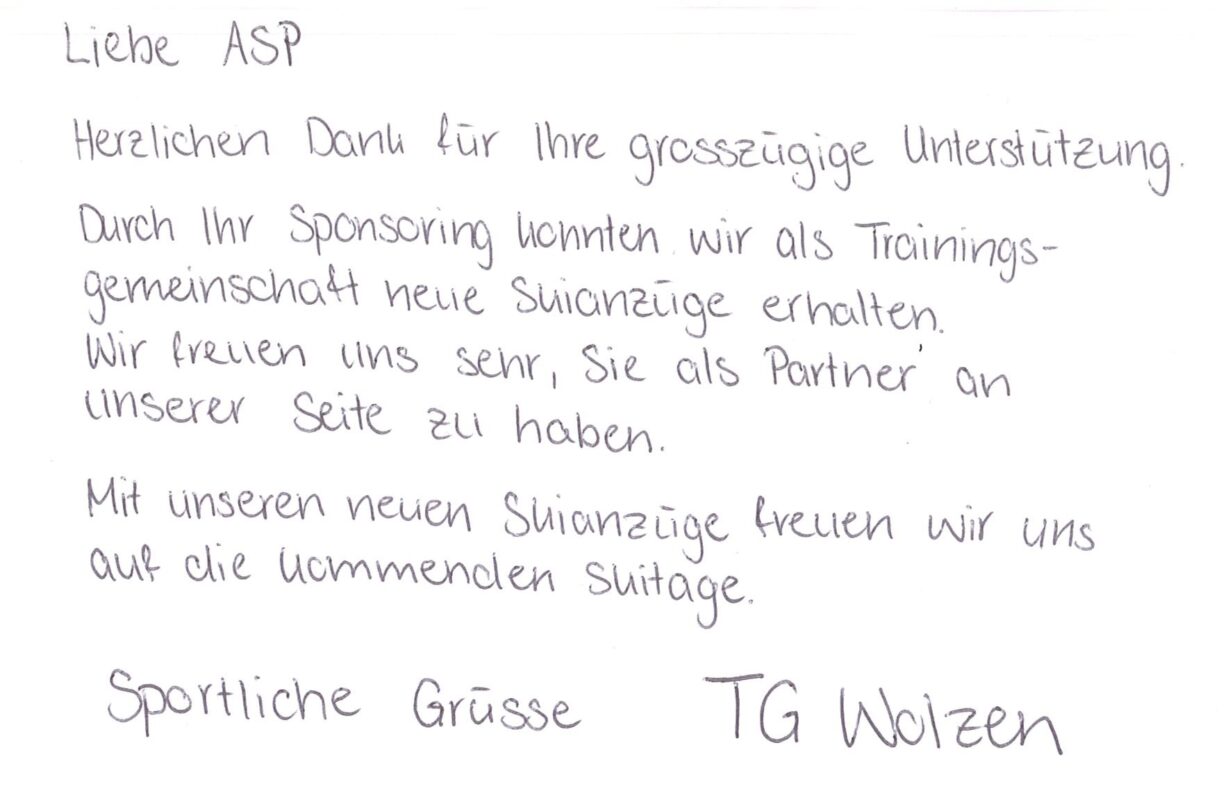 Liebe ASP
Herzlichen Dank für Ihre grosszügige Unterstützung.
Durch Ihr Sponsoring konnten wir als Trainings-
gemeinschaft neue Skianzüge erhalten.
Wir freuen uns sehr, Sie als Partner an
unserer Seite zu haben.
Mit unseren neuen Skianzüge freuen wir uns
auf die kommenden Skitage.
Sportliche Grüsse TG Wolzen